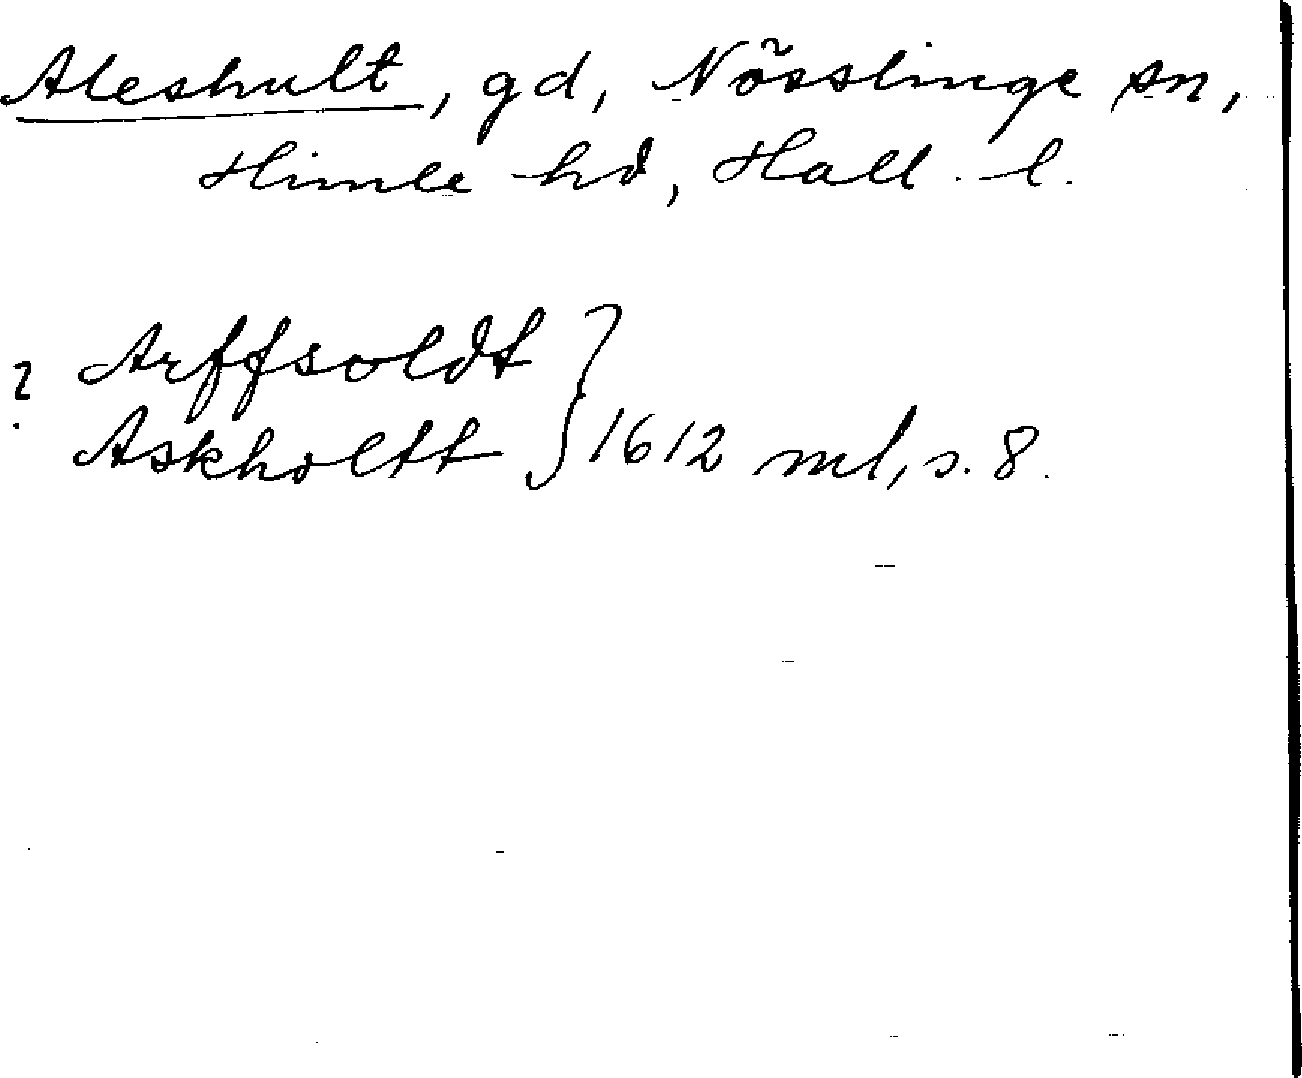 Aleshult, gd, Nösslinge sn,
Himle hd, Hall. l.
? Arffsoldt
Askholtt } 1612 ml, s. 8.